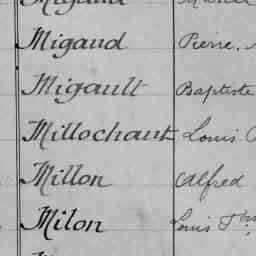 Migaud Pierre
Migault Baptiste
Millochaut Louis
Millon Alfred
Milon Louis Fois